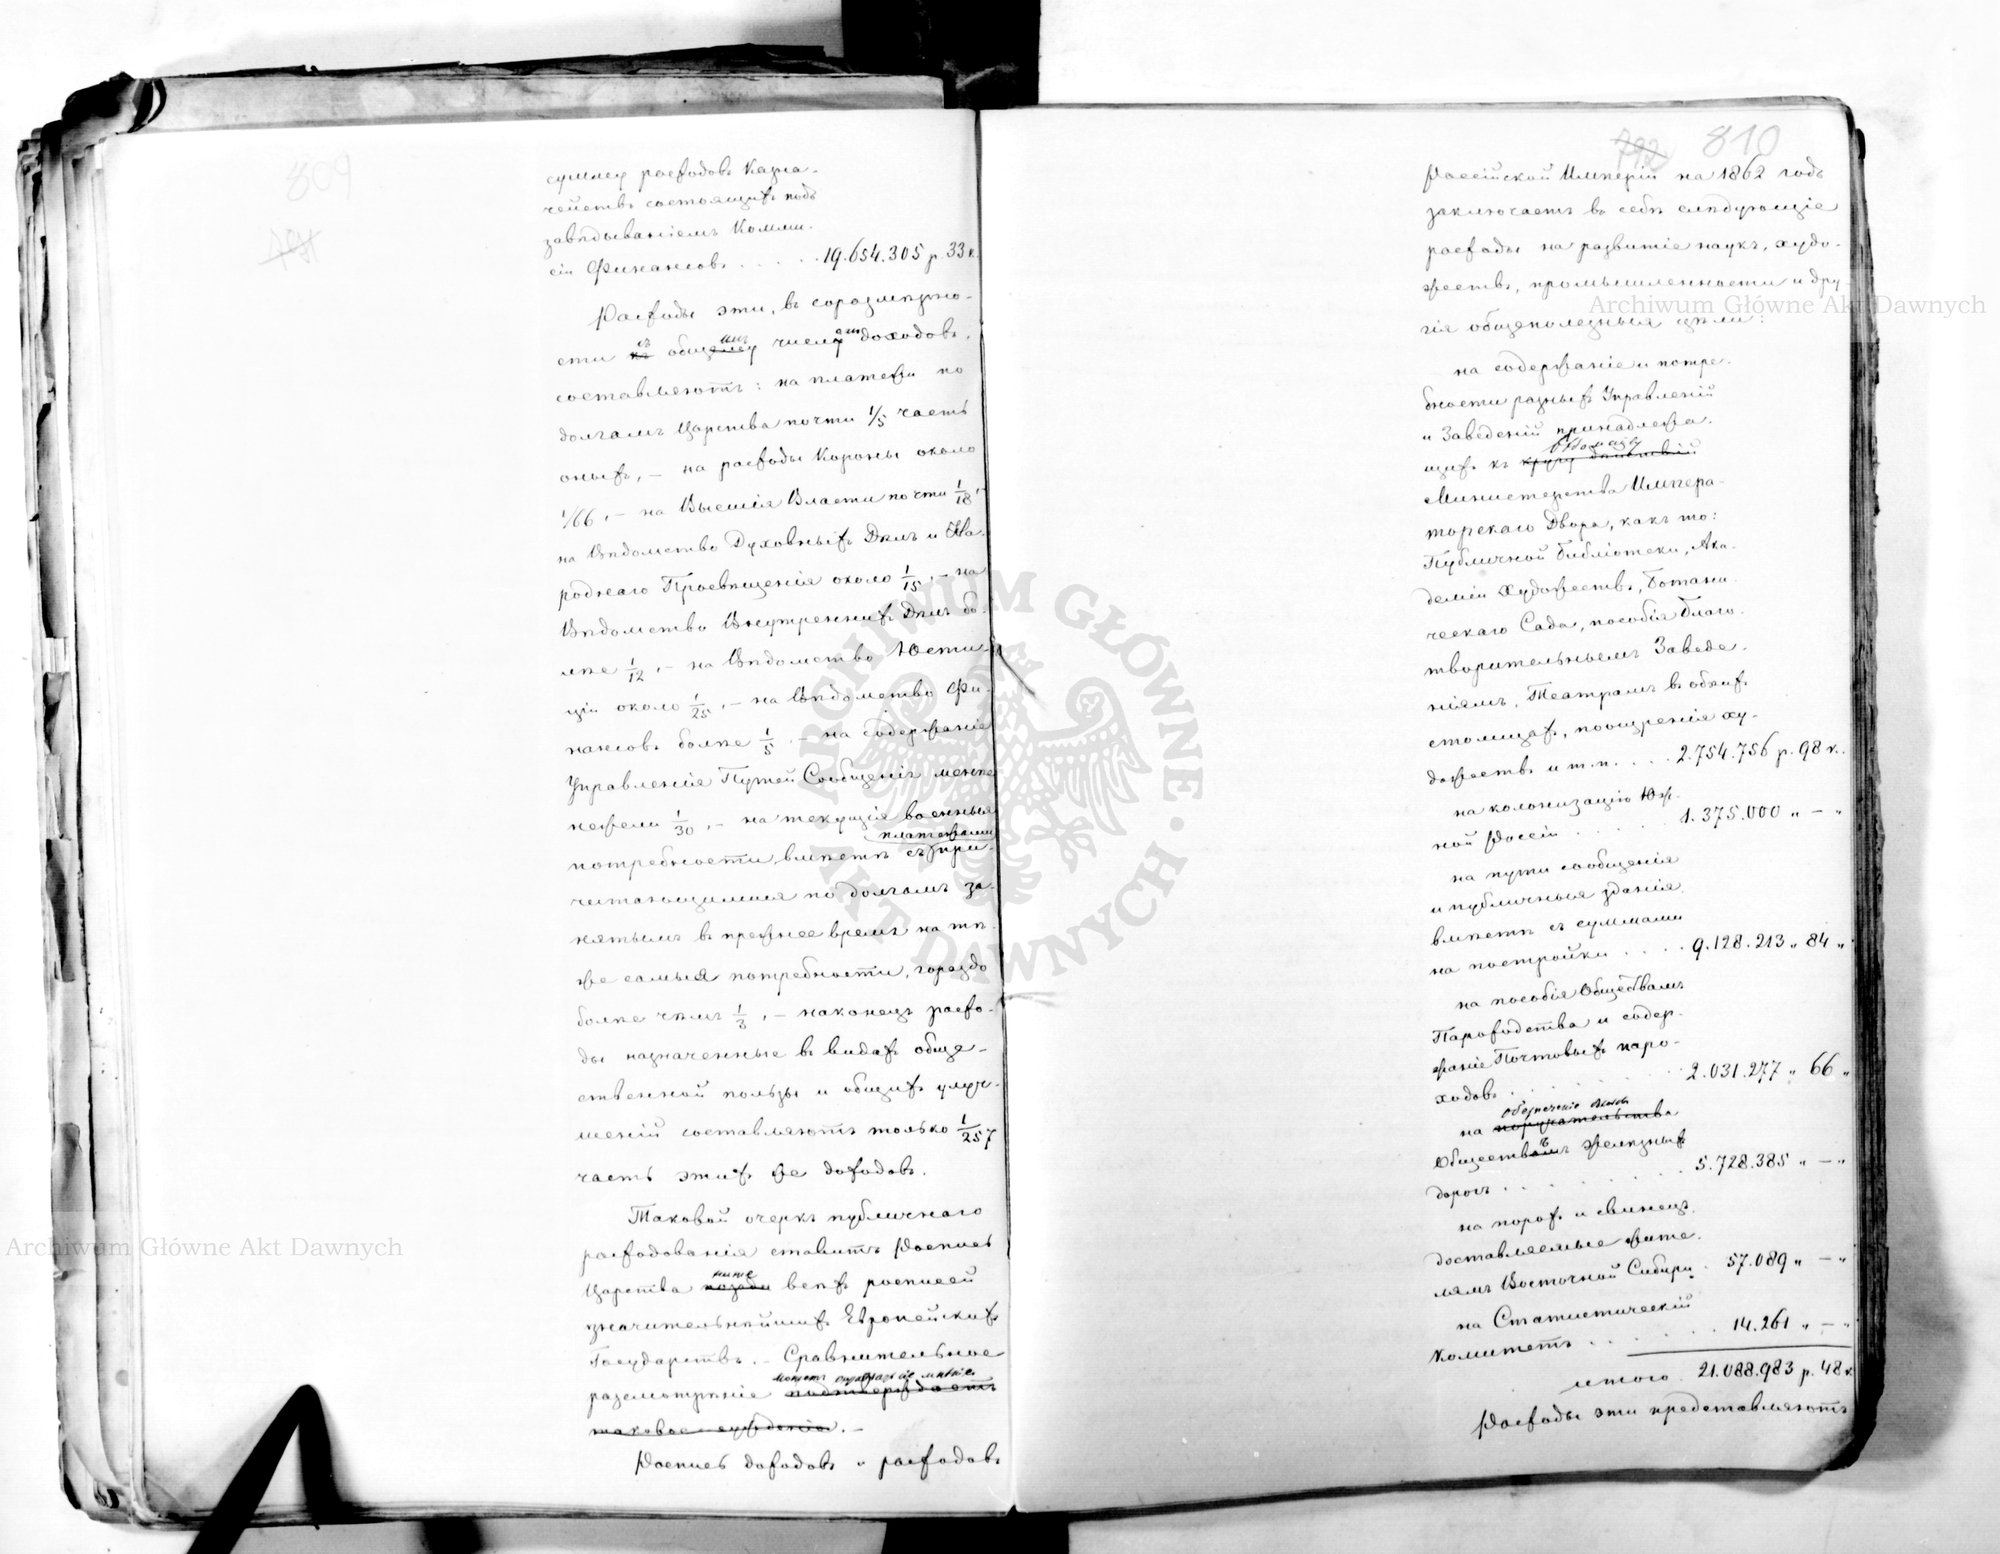 809
791
сумму расходовъ Казна-
чействъ состоящихъ подъ
завѣдываніемъ Коммис-
сіи Финансовъ . . . . . 19.654.305 р. 33 к.
Расходы эти, въ соразмѣрно-
сти съ общимъ числомъ доходовъ,
составляютъ: на платежи по
долгамъ Царства почти 1/5 часть
оныхъ, – на расходы Короны около
1/66, – на Высшія Власти почти 1/18, –
на Вѣдомство Духовныхъ Дѣлъ и На-
роднаго Просвѣщенія около 1/15, – на
Вѣдомство Внутреннихъ Дѣлъ бо-
лѣе 1/12, – на Вѣдомство Юсти-
ціи около 1/25, – на Вѣдомство Фи-
нансовъ болѣе 1/5 – на содержаніе
Управленія Путей Сообщенія менѣе
нежели 1/30, – на текущія военныя
потребности, вмѣстѣ съ платежами при-
читающимися по долгамъ за-
нятымъ въ прежнее время на тѣ-
же самыя потребности, гораздо
болѣе чѣмъ 1/3, – наконецъ расхо-
ды назначенные въ видахъ обще-
ственной пользы и общихъ улуч-
шеній составляютъ только 1/257
часть этихъ же доходовъ.
Таковой очеркъ публичнаго
расходованія ставитъ Роспись
Царства позади ниже всѣхъ росписей
значительнѣйшихъ Европейскихъ
Государствъ. – Сравнительное
разсмотрѣніе подтверждаетъ
таковое сужденіе. –
Роспись доходовъ и расходовъ
792 810
Россійской Имперіи на 1862 годъ
заключаетъ въ себѣ слѣдующіе
расходы на развитіе наукъ, худо-
жествъ, промышленности и дру-
гія общеполезныя цѣли:
на содержаніе и потре-
бности разныхъ Управленій
и Заведеній принадлежа-
щихъ къ
Министерства Импера-
торскаго Двора, какъ то:
Публичной Библіотеки, Ака-
деміи Художествъ, Ботани-
ческаго Сада, пособія Благо-
творительнымъ Заведе-
ніямъ, Театрамъ въ обѣихъ
столицахъ, поощренія ху-
дожествъ и т.п. . . . 2.754.756 р. 98 к.
на колонизацію Юж-
ной Россіи . . . . . 1.375.000 „ – „
на пути сообщенія
и публичныя зданія,
вмѣстѣ съ суммами
на постройки . . . . 9.128.213 „ 84 „
на пособія Обществамъ
Пароходства и содер-
жаніе Почтовыхъ паро-
ходовъ . . . . . . . 2.031.277 „ 66 „
на поручательства обезпеченіе
Обществамъ желѣзныхъ
дорогъ . . . . . . . 5.728.385 „ – „
на порохъ и свинецъ,
доставляемые жите-
лямъ Восточной Сибири . 57.089 „ – „
на Статистическій
Комитетъ . . . . . . 14.261 „ – „
итого 21.088.983 р. 48 к.
Расходы эти представляютъ
Archiwum Główne Akt Dawnych
Archiwum Główne Akt Dawnych
ARCHIWUM GŁÓWNE · AKT DAWNYCH ·